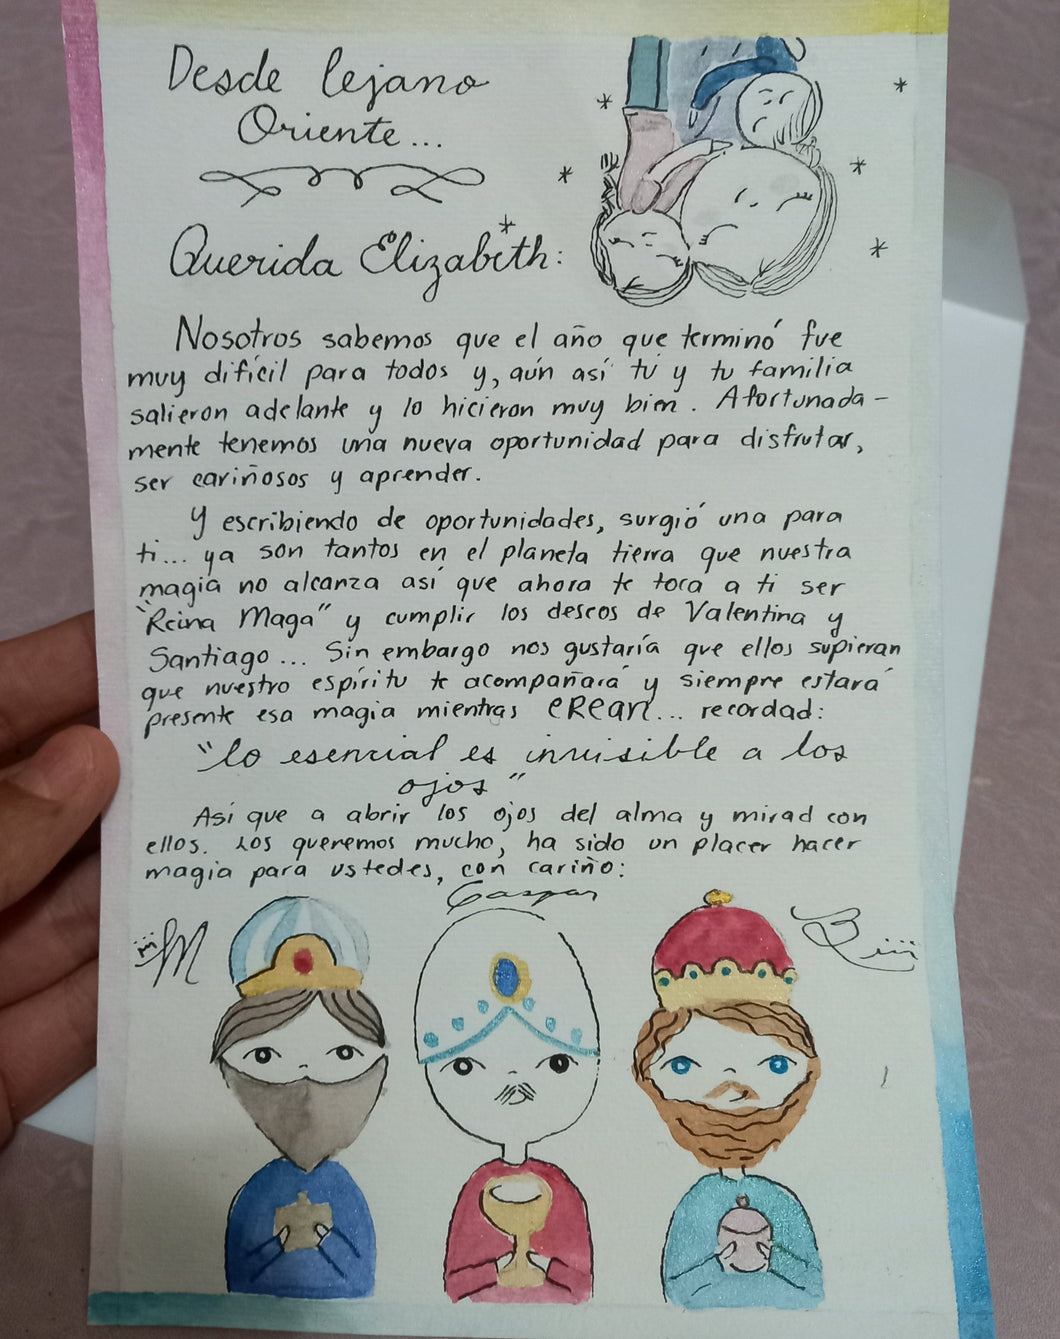 Desde lejano
Oriente...
Querida Elizabeth:
Nosotros sabemos que el año que terminó fue
muy difícil para todos y, aún así tú y tu familia
salieron adelante y lo hicieron muy bien. Afortunada-
mente tenemos una nueva oportunidad para disfrutar,
ser cariñosos y aprender.
Y escribiendo de oportunidades, surgió una para
ti... ya son tantos en el planeta tierra que nuestra
magia no alcanza así que ahora te toca a ti ser
"Reina Maga" y cumplir los deseos de Valentina y
Santiago... Sin embargo nos gustaría que ellos supieran
que nuestro espíritu te acompañará y siempre estará
presente esa magia mientras CREAN... recordad:
"lo esencial es invisible a los
ojos"
Así que a abrir los ojos del alma y mirad con
ellos. Los queremos mucho, ha sido un placer hacer
magia para ustedes, con cariño:
Gaspar
M
B